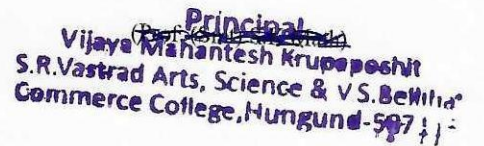 Principal
Vijaya Mahantesh Krupaposhit
S.R.Vastrad Arts, Science & V S.
Commerce College, Hungund-